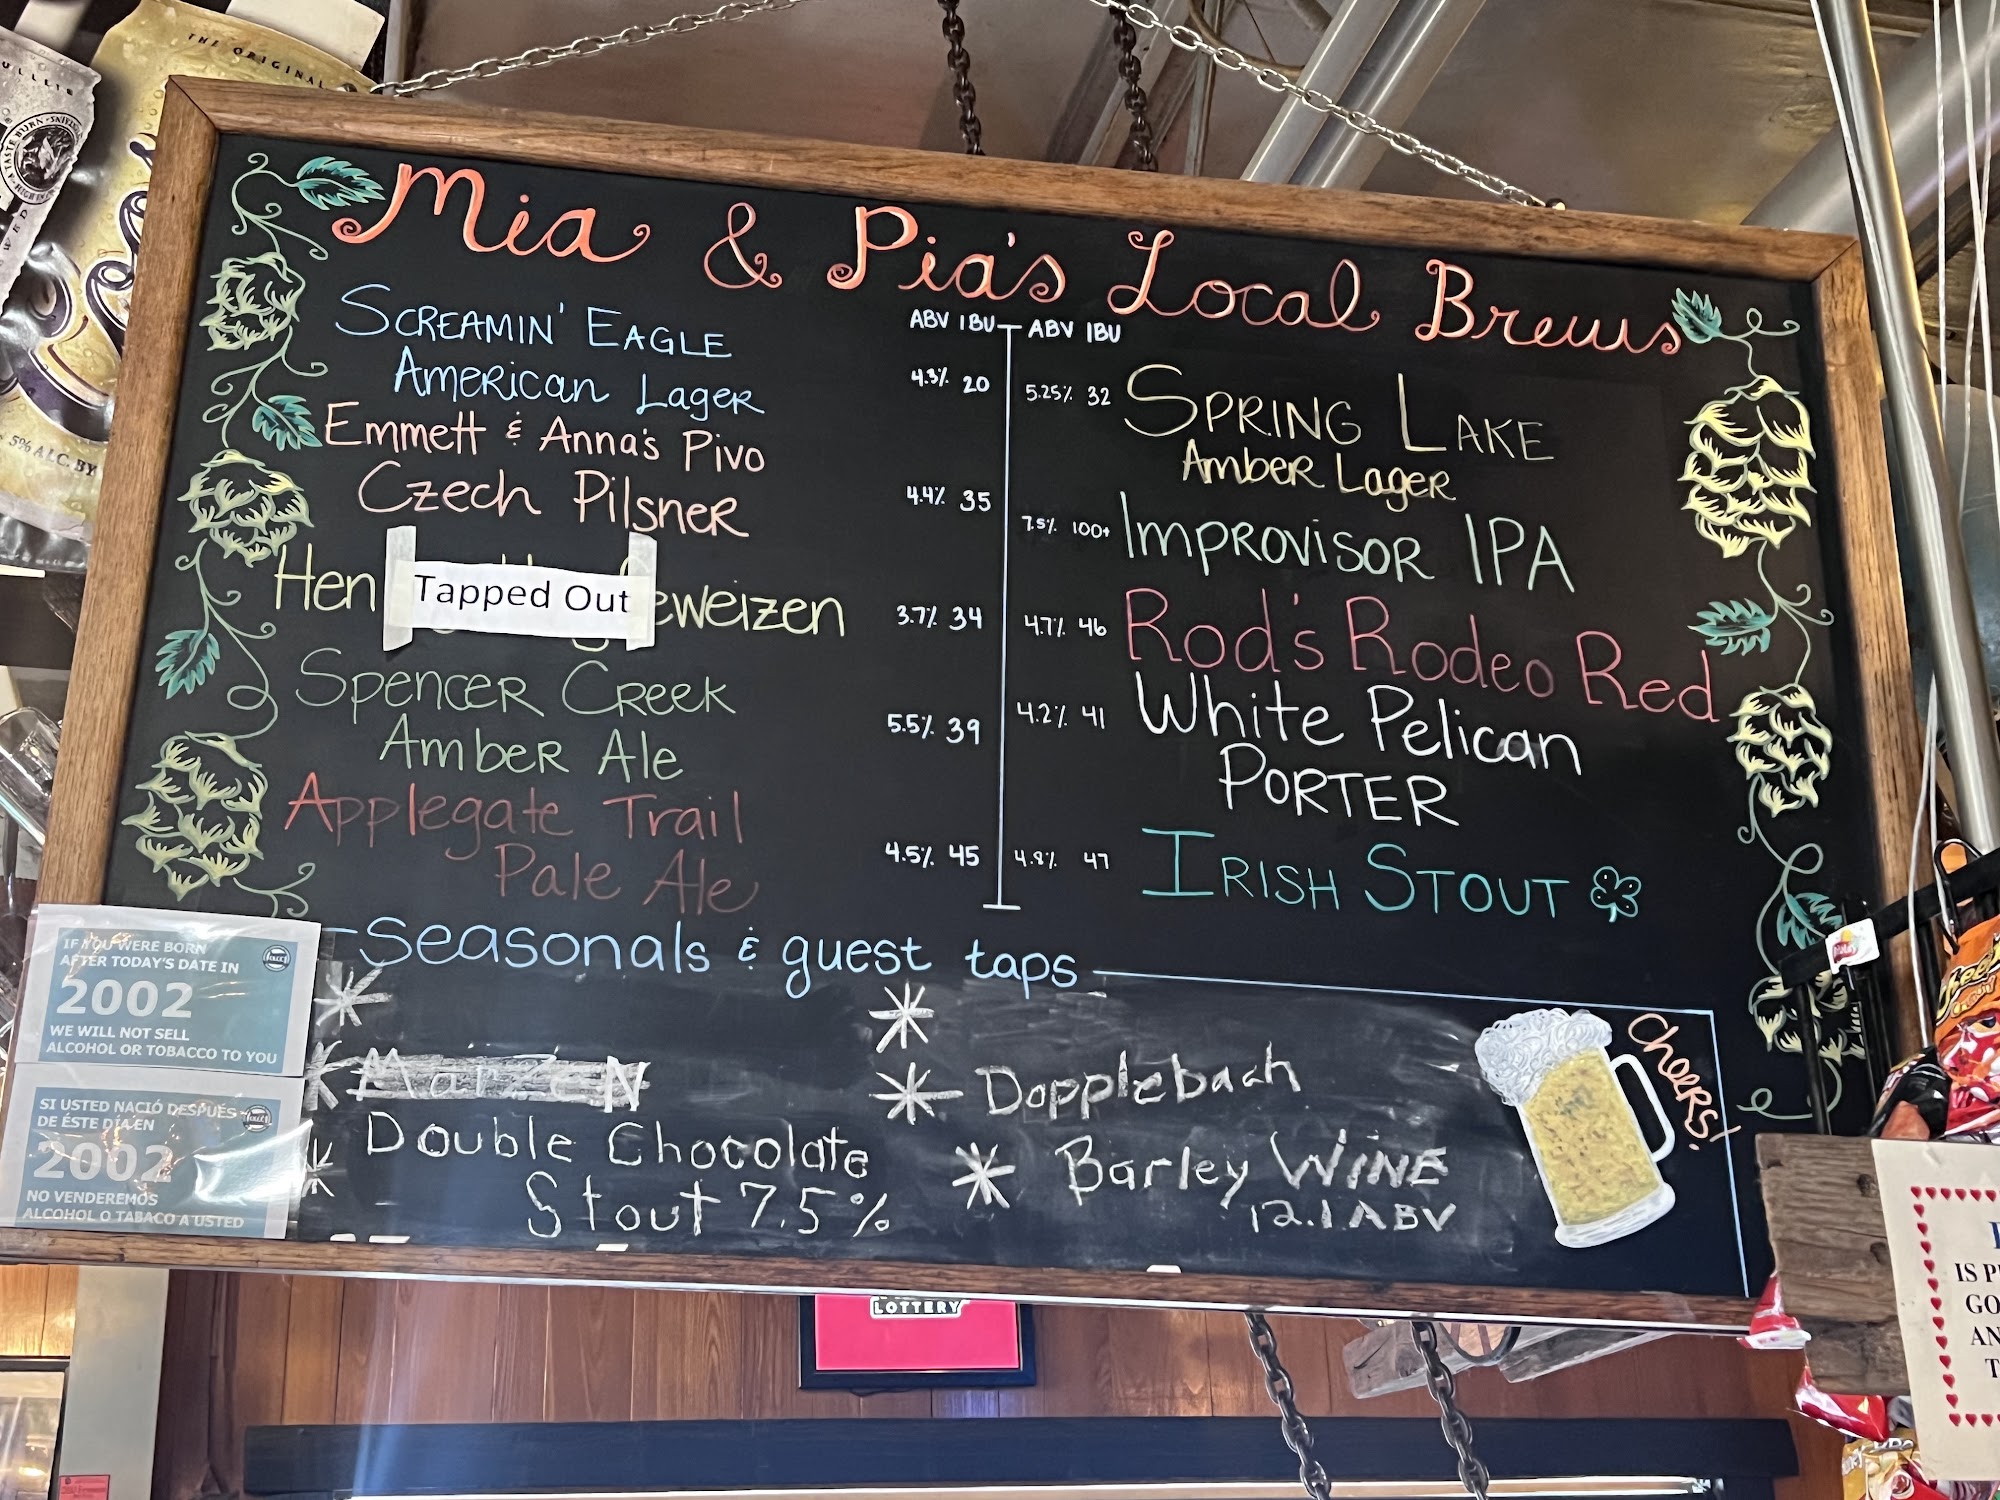 THE ORIGINAL
5% ALC. BY
Mia & Pia's Local Brews
ABV IBU
ABV IBU
SCREAMIN' EAGLE
AMERICAN LAGER
4.3% 20
Emmett & Anna's Pivo
Czech Pilsner
4.4% 35
Hen
Tapped Out
eweizen
3.7% 34
Spencer Creek
Amber Ale
5.5% 39
Applegate Trail
Pale Ale
4.5% 45
5.25% 32
SPRING LAKE
AMBER LAGER
7.5% 100+
IMPROVISOR IPA
4.7% 46
Rod's Rodeo Red
4.2% 41
White Pelican
PORTER
4.8% 47
IRISH STOUT
Seasonals & guest taps
MarzeN
Double Chocolate
Stout 7.5%
Dopplebach
Barley WINE
12.1 ABV
Cheers!
IF YOU WERE BORN
AFTER TODAY'S DATE IN
2002
WE WILL NOT SELL
ALCOHOL OR TOBACCO TO YOU
SI USTED NACIÓ DESPUÉS
DE ÉSTE DÍA EN
2002
NO VENDEREMOS
ALCOHOL O TABACO A USTED
LOTTERY
IS P
GO
AN
T